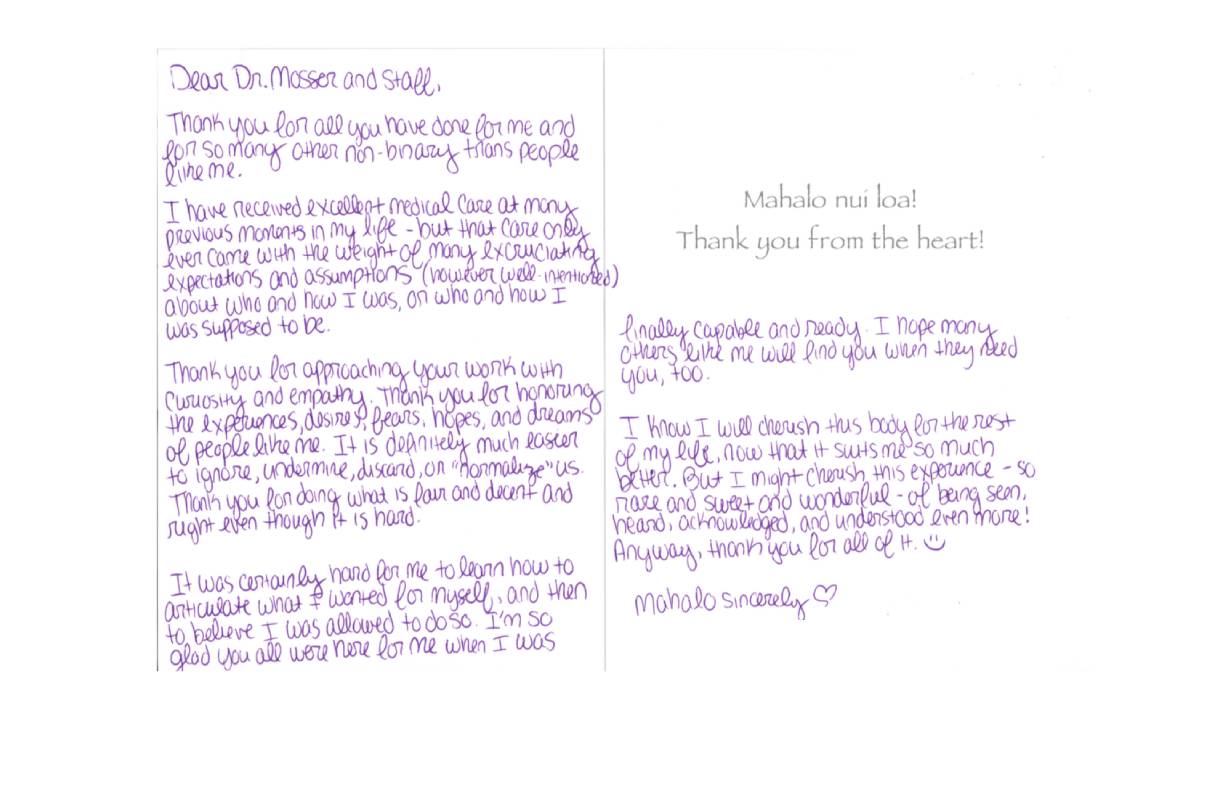 Dear Dr. Mosser and Staff,
Thank you for all you have done for me and
for so many other non-binary trans people
like me.
I have received excellent medical care at many
previous moments in my life - but that care only
ever came with the weight of many excruciating
expectations and assumptions (however well-intentioned)
about who and how I was, or who and how I
was supposed to be.
Thank you for approaching your work with
curiosity and empathy. Thank you for honoring
the experiences, desires, fears, hopes, and dreams
of people like me. It is definitely much easier
to ignore, undermine, discard, or "normalize" us.
Thank you for doing what is fair and decent and
right even though it is hard.
It was certainly hard for me to learn how to
articulate what I wanted for myself, and then
to believe I was allowed to do so. I'm so
glad you all were here for me when I was
Mahalo nui loa!
Thank you from the heart!
finally capable and ready. I hope many
others like me will find you when they need
you, too.
I know I will cherish this body for the rest
of my life, now that it suits me so much
better. But I might cherish this experience - so
rare and sweet and wonderful - of being seen,
heard, acknowledged, and understood even more!
Anyway, thank you for all of it. :)
Mahalo sincerely ♡